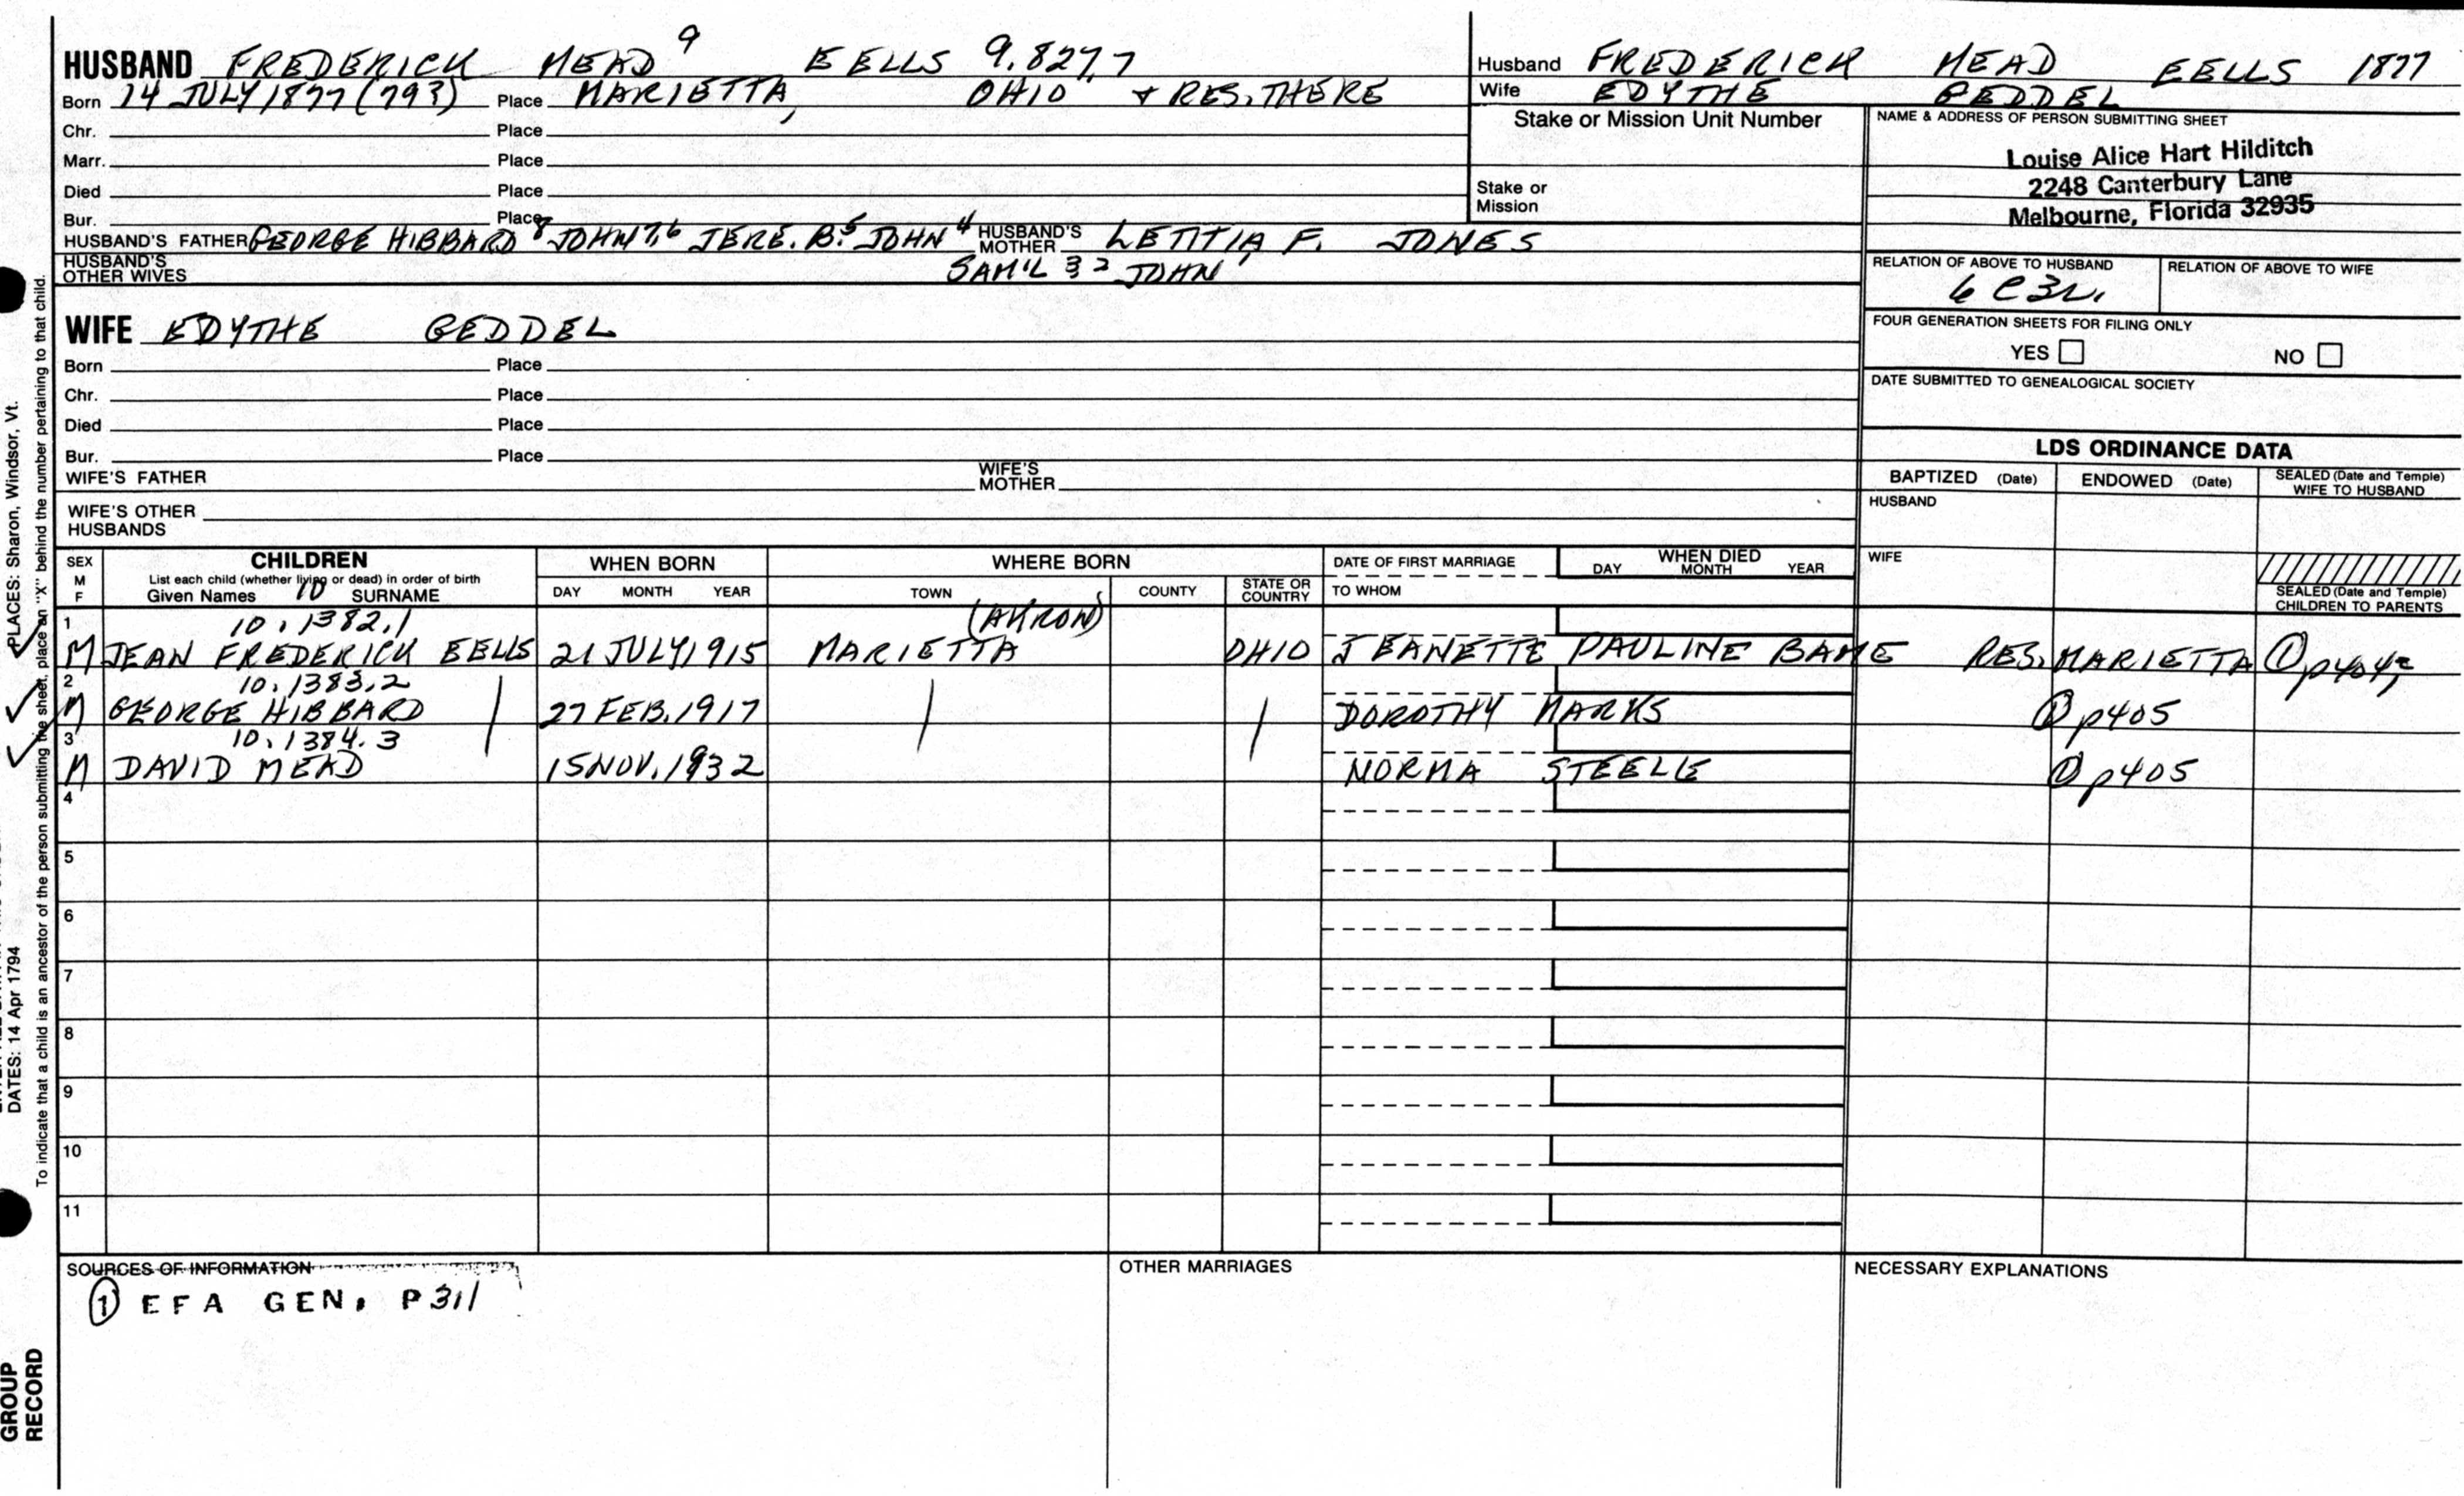 HUSBAND FREDERICK MEAD 9 EELLS 9.827.7
Born 14 JULY 1877 (793) Place MARIETTA, OHIO & RES. THERE
Chr. Place
Marr. Place
Died Place
Bur. Place
HUSBAND'S FATHER GEORGE HIBBARD 8 JOHN 7,6 JERE. B. 5 JOHN 4 HUSBAND'S MOTHER LETITIA F. JONES
HUSBAND'S OTHER WIVES SAM'L 3 2 JOHN 1
Husband FREDERICK MEAD EELLS 1877
Wife EDYTHE GEDDEL
Stake or Mission Unit Number
Stake or
Mission
NAME & ADDRESS OF PERSON SUBMITTING SHEET
Louise Alice Hart Hilditch
2248 Canterbury Lane
Melbourne, Florida 32935
RELATION OF ABOVE TO HUSBAND RELATION OF ABOVE TO WIFE
6 C 3 r.
FOUR GENERATION SHEETS FOR FILING ONLY
YES NO
DATE SUBMITTED TO GENEALOGICAL SOCIETY
WIFE EDYTHE GEDDEL
Born Place
Chr. Place
Died Place
Bur. Place
WIFE'S FATHER WIFE'S MOTHER
WIFE'S OTHER
HUSBANDS
LDS ORDINANCE DATA
BAPTIZED (Date) ENDOWED (Date) SEALED (Date and Temple) WIFE TO HUSBAND
HUSBAND
WIFE
SEALED (Date and Temple)
CHILDREN TO PARENTS
SEX M F CHILDREN WHEN BORN WHERE BORN DATE OF FIRST MARRIAGE WHEN DIED
List each child (whether living or dead) in order of birth
Given Names 10 SURNAME DAY MONTH YEAR TOWN COUNTY STATE OR COUNTRY TO WHOM DAY MONTH YEAR
1 10.1382.1 (AKRON)
M JEAN FREDERICK EELLS 21 JULY 1915 MARIETTA OHIO JEANETTE PAULINE BAME RES. MARIETTA ① p404,
2 10.1383.2
M GEORGE HIBBARD 27 FEB. 1917 DOROTHY MARKS ① p405
3 10.1384.3
M DAVID MEAD 15 NOV. 1932 NORMA STEELE ① p405
4
5
6
7
8
9
10
11
SOURCES OF INFORMATION OTHER MARRIAGES NECESSARY EXPLANATIONS
① EFA GEN. P311
PLACES: Sharon, Windsor, Vt.
DATES: 14 Apr 1794
To indicate that a child is an ancestor of the person submitting the sheet, place an "X" behind the number pertaining to that child.
GROUP
RECORD